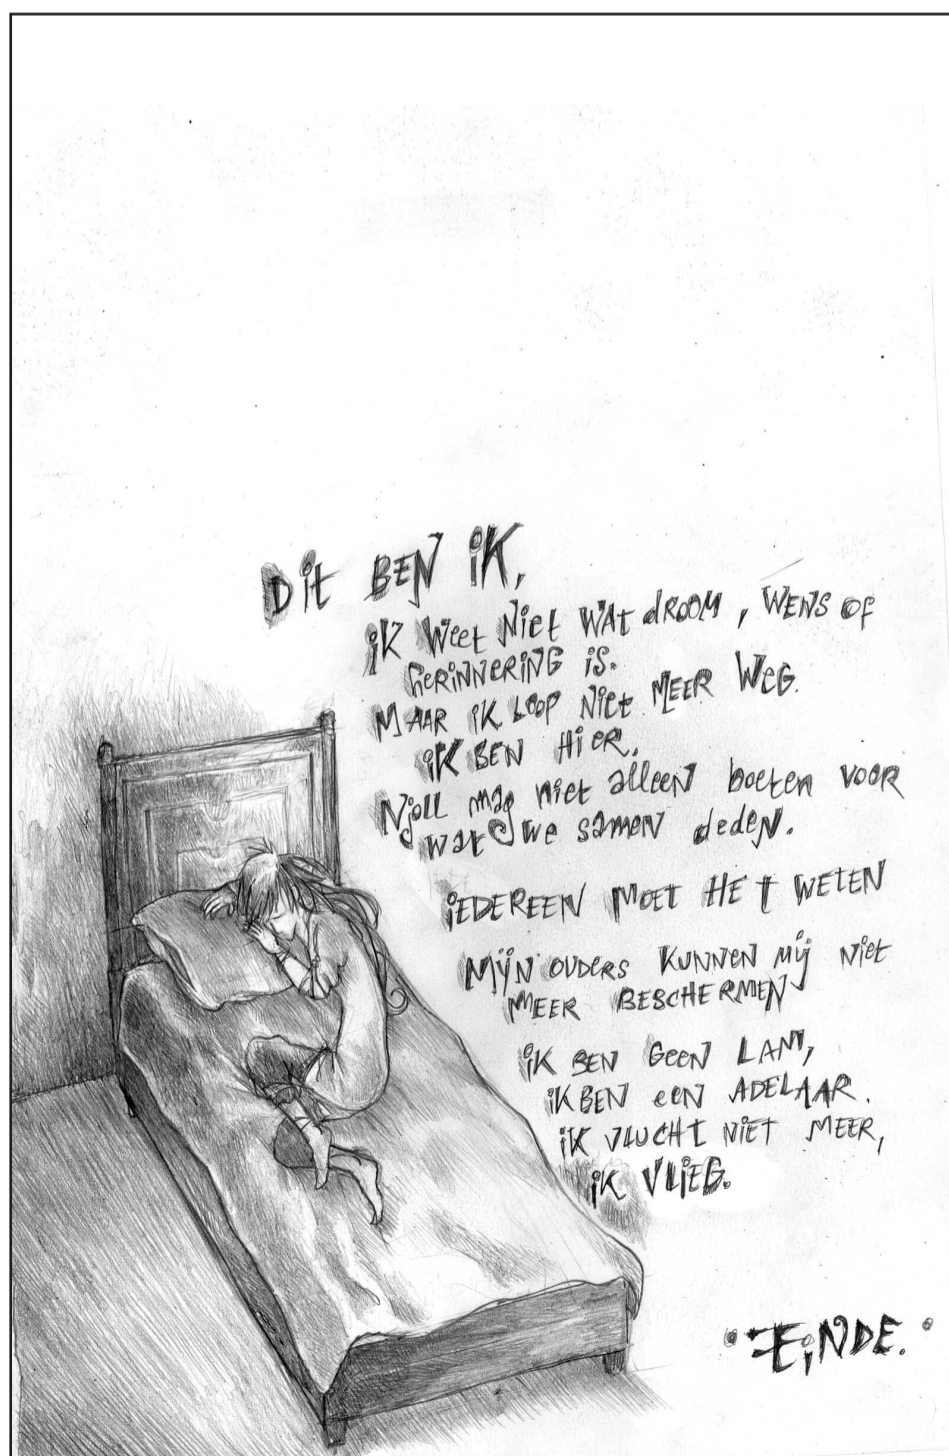 Dit BEN iK,
iK Weet Niet WAt dROOM, WENS OF
HERINNERING iS.
MAAR iK LOOP Niet MEER WeG.
iK BEN HiER.
Njoll mag niet alleen boeten voor
wat we samen deden.
iEDEREEN MOET HET WETEN
MijN OUDERS KUNNEN Mij Niet
MEER BESCHERMEN
iK BEN GEEN LAM,
iK BEN eeN ADELAAR.
iK VLUCHT NiET MEER,
iK VLiEG.
• EiNDE. •